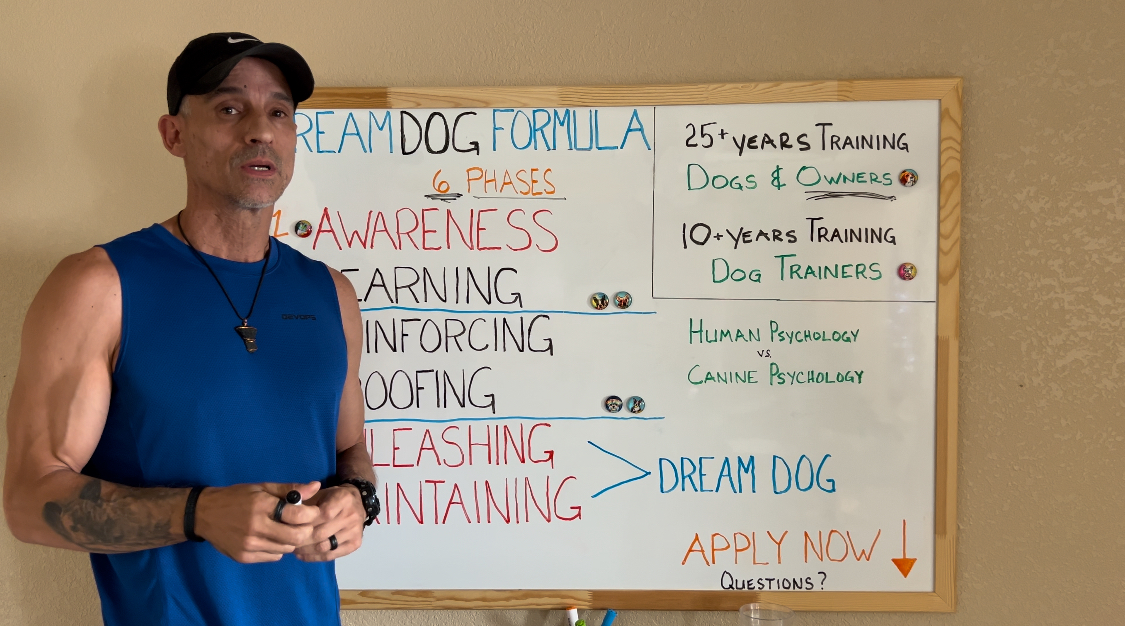 REAM DOG FORMULA
6 PHASES
1 AWARENESS
EARNING
INFORCING
OOFING
LEASHING
INTAINING
25+ YEARS TRAINING
DOGS & OWNERS
10+ YEARS TRAINING
DOG TRAINERS
HUMAN PSYCHOLOGY
VS.
CANINE PSYCHOLOGY
DREAM DOG
APPLY NOW
QUESTIONS?
DEVOPS